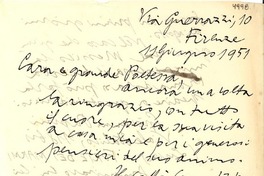 4998
Via Guerrazzi, 10
Firenze
11 Giugno 1951
Cara e grande Poetessa,
ancora una volta
la ringrazio, con tutto
il cuore, per la sua visita
a casa mia e per i generosi
pensieri del suo animo.